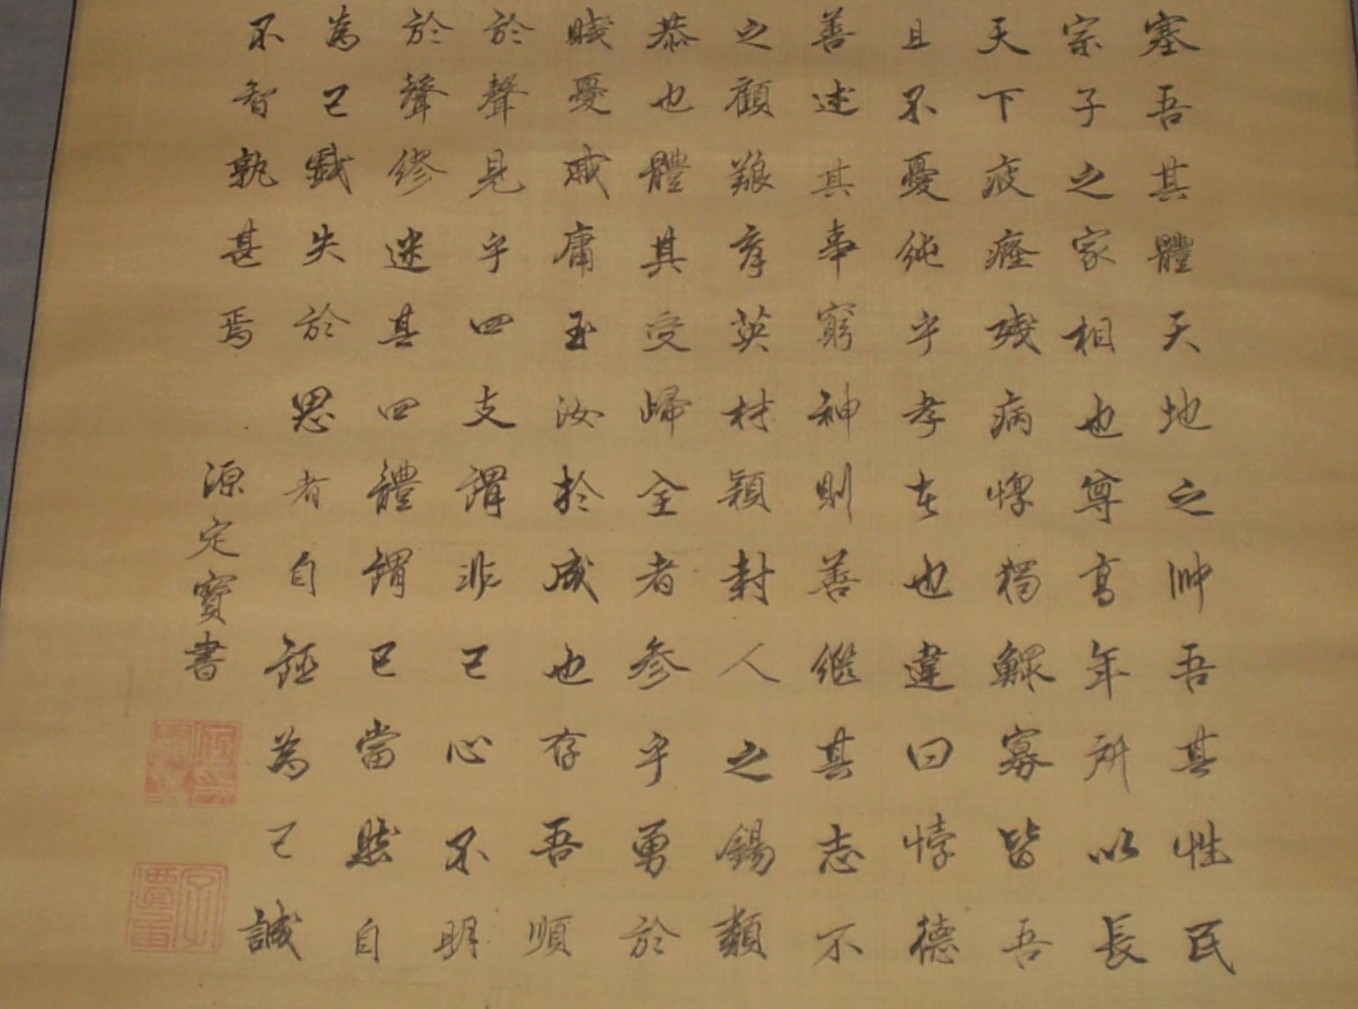 塞吾其體天地之帥吾其性民
宗子之家相也尊高年所以長
天下疲癃殘病惸獨鰥寡皆吾
且不憂純乎孝者也違曰悖德
善述其事窮神則善繼其志不
之顧養育英材穎封人之錫類
恭也體其受歸全者參乎勇於
賤憂戚庸玉汝於成也存吾順
於聲見乎四支謂非己心不明
於聲繆迷其四體謂己當然自
為己戲失於思者自誣為己誠
不智孰甚焉
源定寶書